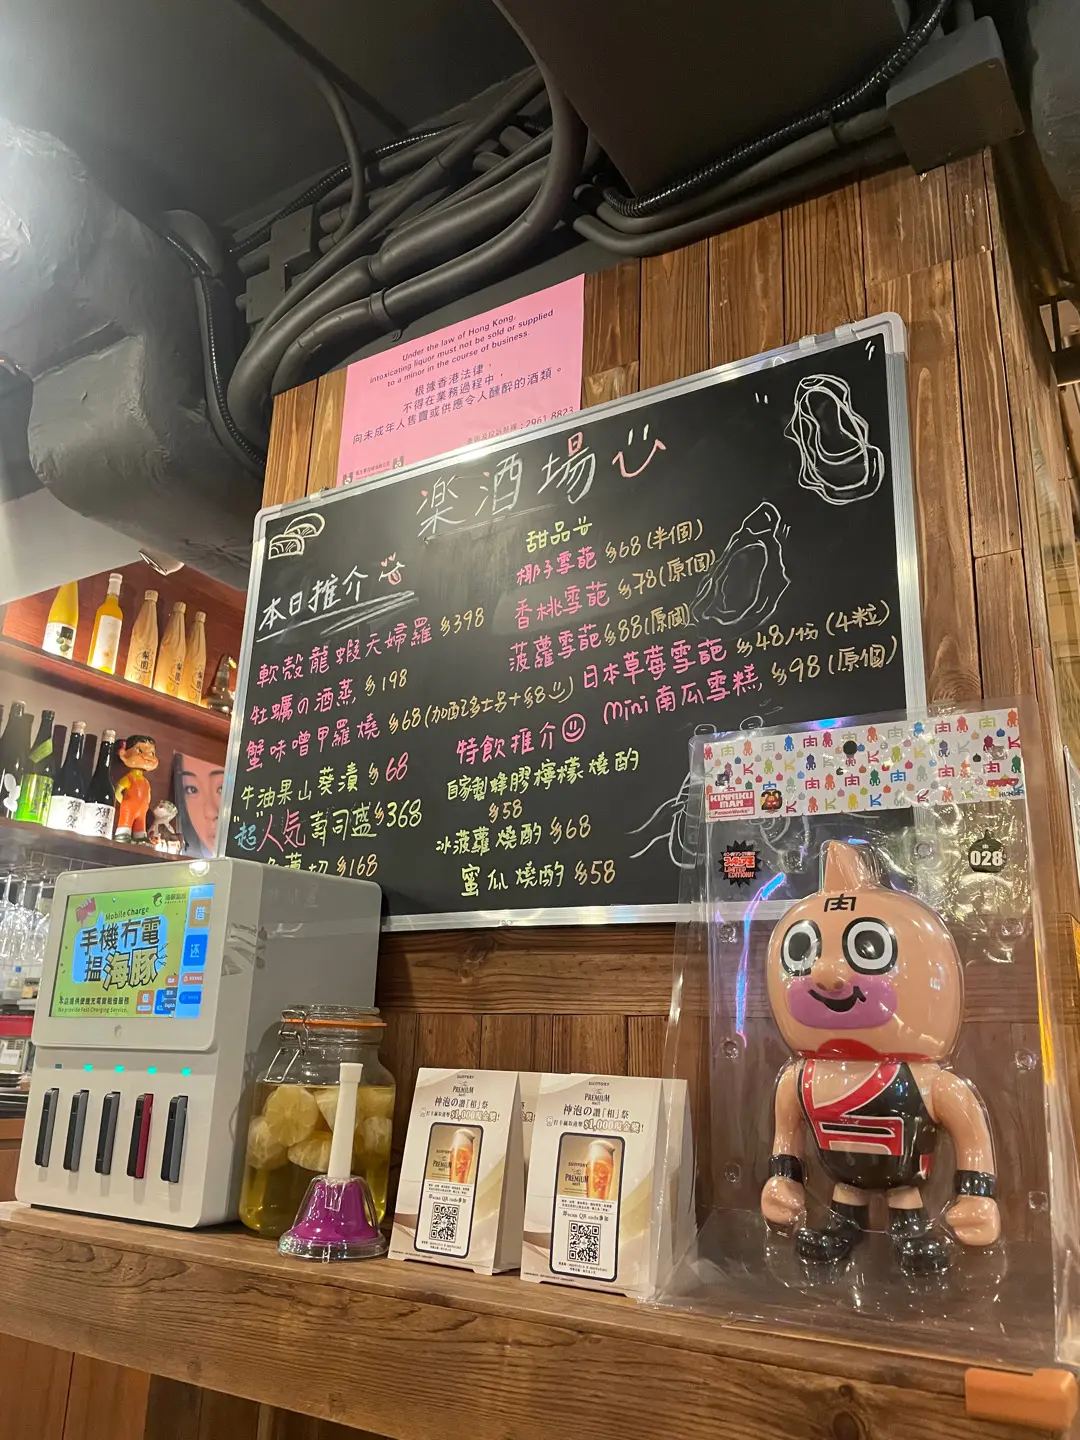 Under the law of Hong Kong,
intoxicating liquor must not be sold or supplied
to a minor in the course of business.
根據香港法律，
不得在業務過程中，
向未成年人售賣或供應令人醺醉的酒類。
2961 8823
楽酒場
本日推介
軟殼龍蝦天婦羅 $398
牡蠣の酒蒸 $198
蟹味噌甲羅燒 $68 (加配多士另+$8)
牛油果山葵漬 $68
"超"人気 壽司盛 $368
$168
甜品
椰子雪葩 $68 (半個)
香桃雪葩 $78 (原個)
菠蘿雪葩 $88 (原個)
日本草莓雪葩 $48/份 (4粒)
mini南瓜雪糕 $98 (原個)
特飲推介
自家製蜂膠檸檬燒酌
$58
冰菠蘿燒酌 $68
蜜瓜燒酌 $58
Mobile Charge
手機冇電
搵海豚
We provide Fast Charging Service.
借
还
SUNTORY
The
PREMIUM
MALT'S
神泡の讚「相」祭
打卡贏取達學$1,000現金獎!
SUNTORY
The
PREMIUM
MALT'S
神泡の讚「相」祭
打卡贏取達學$1,000現金獎!
KINNIKU
MAN
LIMITED
EDITION!!
028
肉